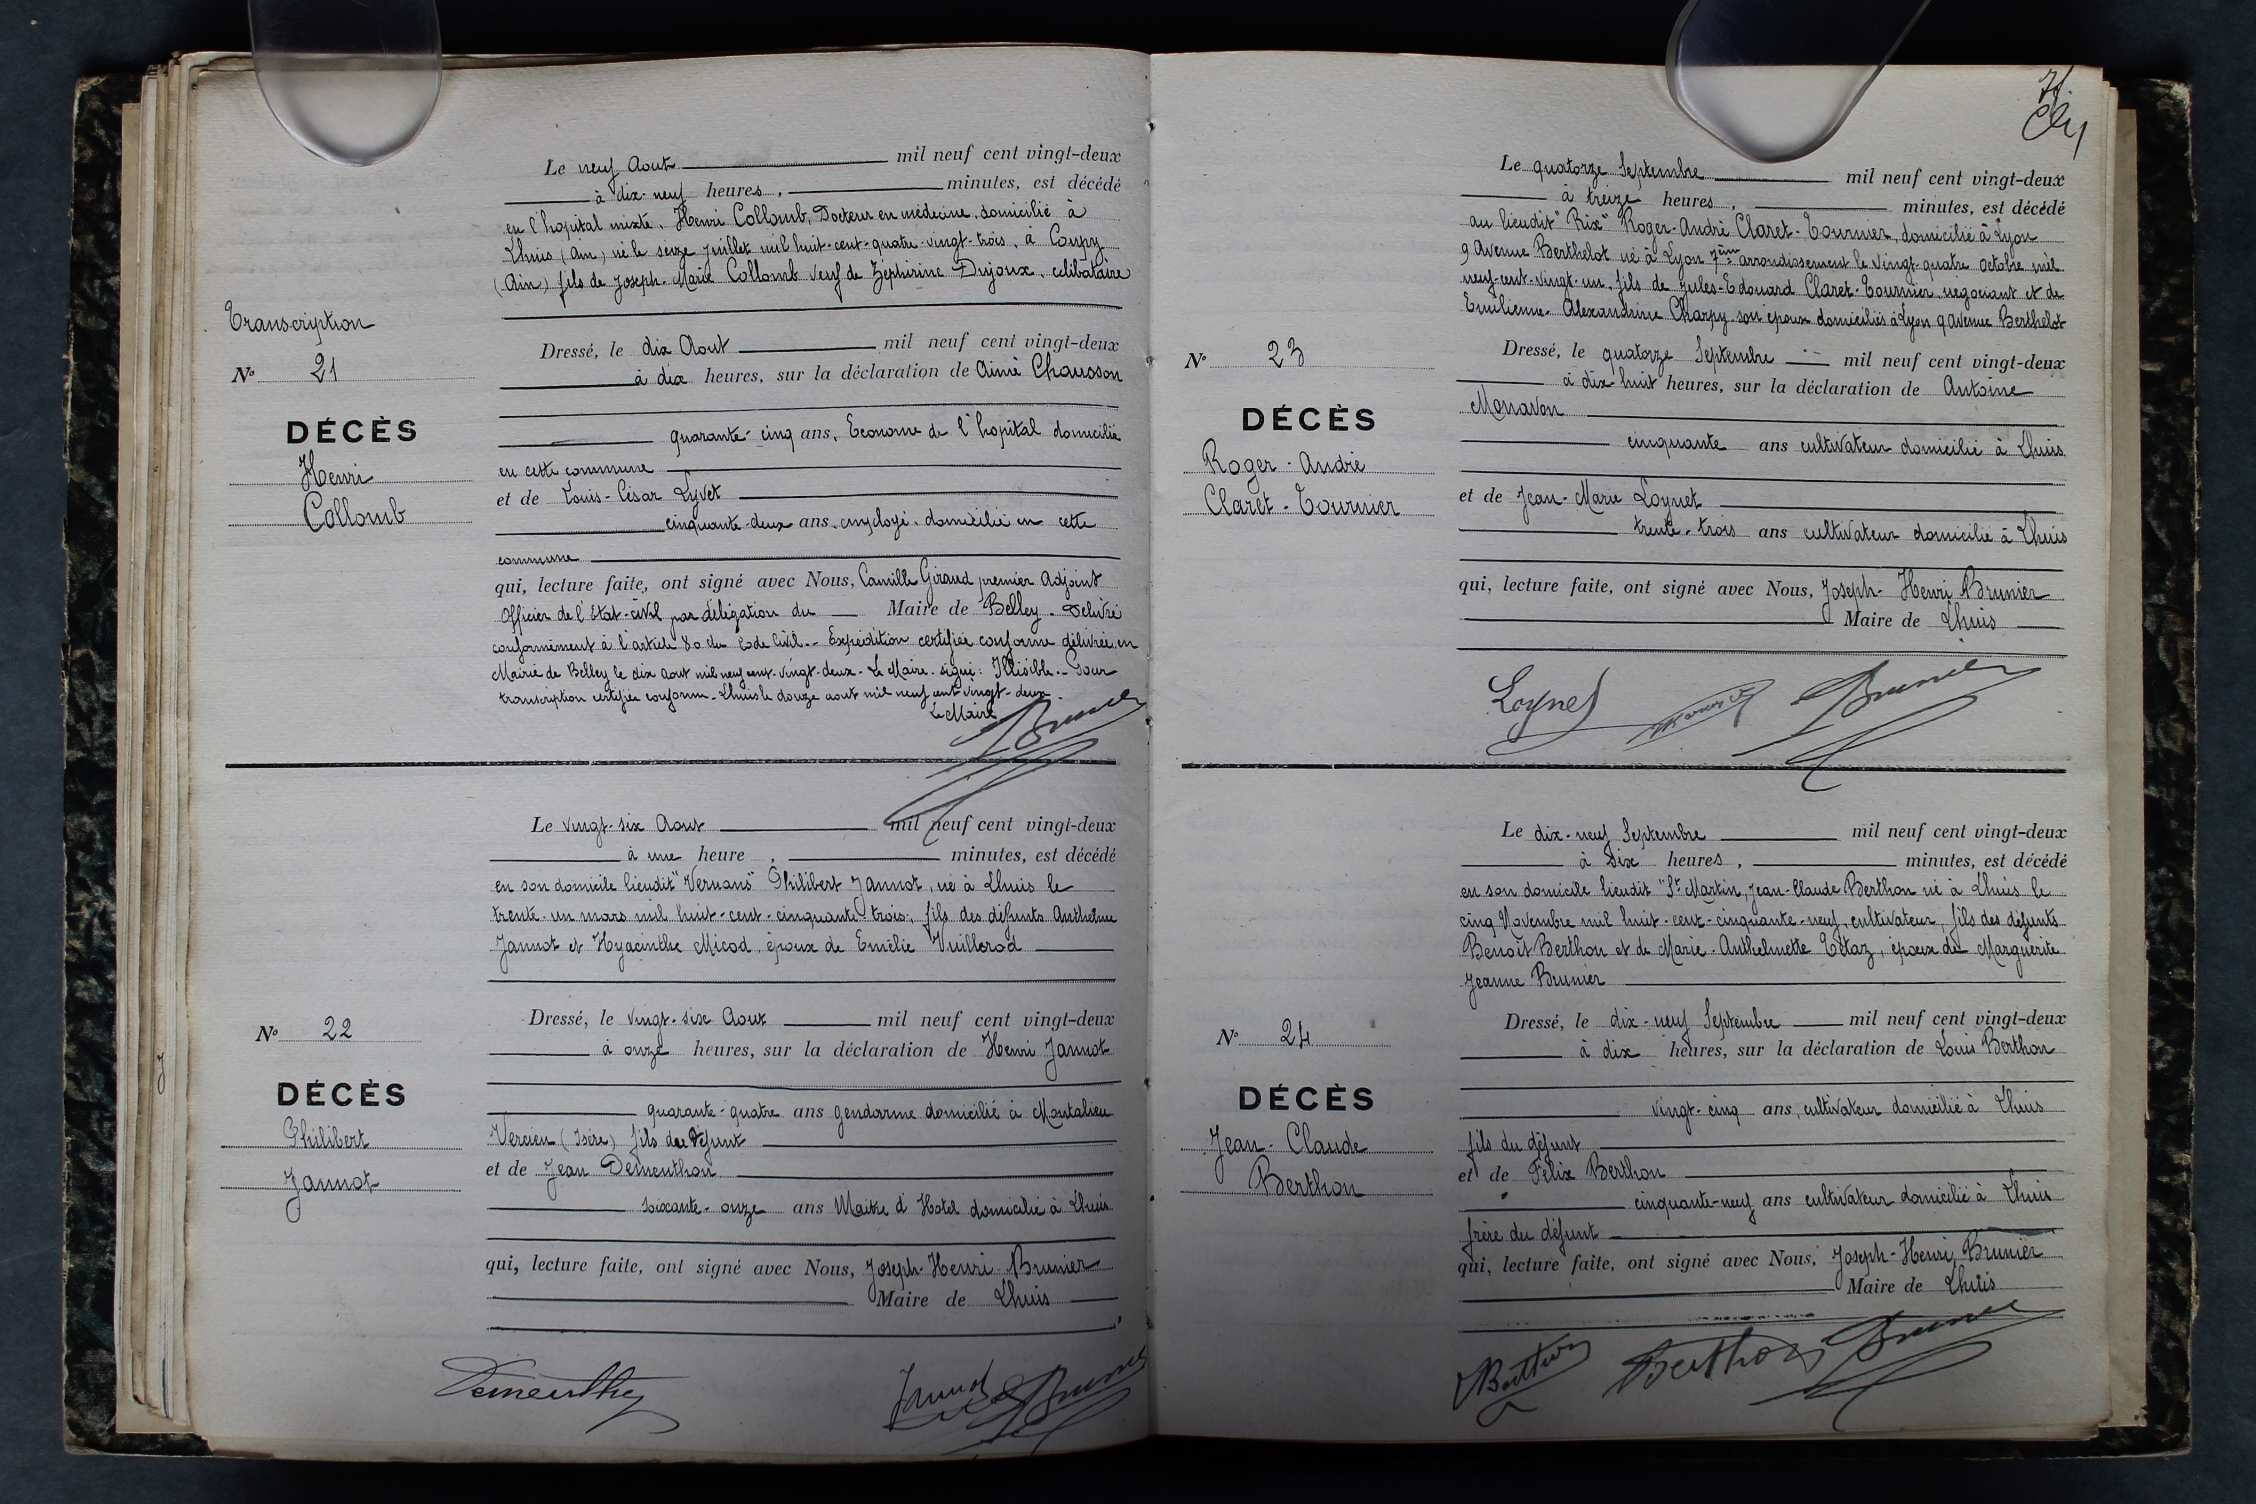 Le neuf Aout mil neuf cent vingt-deux
à dix-neuf heures, minutes, est décédé
en l'hopital mixte, Henri Collomb, Docteur en médecine, domicilié à
Lhuis (Ain) né le seize juillet mil huit-cent-quatre-vingt-trois, à Conpy
(Ain) fils de Joseph-Marie Collomb veuf de Zéphirine Dujoux, célibataire
Transcription
N° 21
DÉCÈS
Henri
Collomb
Dressé, le dix Aout mil neuf cent vingt-deux
à dix heures, sur la déclaration de Aimé Chausson
quarante-cinq ans, Econome de l'hopital domicilié
en cette commune
et de Louis-César Lyvet
cinquante-deux ans, employé, domicilié en cette
commune
qui, lecture faite, ont signé avec Nous, Camille Giraud premier Adjoint
Officier de l'Etat-civil par délégation du Maire de Belley. Délivré
conformément à l'article 80 du Code Civil.- Expédition certifiée conforme délivrée en
Mairie de Belley le dix aout mil neuf cent-vingt-deux. Le Maire. signé: Illisible.- Pour
transcription certifiée conforme. Lhuis le douze aout mil neuf cent-vingt-deux.
Le Maire
Brunier
Le vingt-six Aout mil neuf cent vingt-deux
à une heure, minutes, est décédé
en son domicile lieudit "Vernans" Philibert Jannot, né à Lhuis le
trente-un mars mil huit-cent-cinquante-trois, fils des défunts Anthelme
Jannot et Hyacinthe Micod, époux de Emélie Vuillerod
N° 22
DÉCÈS
Philibert
Jannot
Dressé, le vingt-six Aout mil neuf cent vingt-deux
à onze heures, sur la déclaration de Henri Jannot
quarante-quatre ans gendarme domicilié à Montalieu
Vercieu (Isère) fils du défunt
et de Jean Dementhon
soixante-onze ans Maitre d'Hotel domicilié à Lhuis
qui, lecture faite, ont signé avec Nous, Joseph-Henri Brunier
Maire de Lhuis
Dementhon Jannot Brunier
71.
Le quatorze Septembre mil neuf cent vingt-deux
à treize heures, minutes, est décédé
au lieudit "Rix" Roger-André Claret-Tournier, domicilié à Lyon
9 Avenue Berthelot né à Lyon 7ème arrondissement le vingt-quatre octobre mil
neuf-cent-vingt-un, fils de Jules-Edouard Claret-Tournier, negociant et de
Emilienne-Alexandrine Charpy son epoux domiciliés à Lyon 9 Avenue Berthelot
N° 23
DÉCÈS
Roger-André
Claret-Tournier
Dressé, le quatorze Septembre mil neuf cent vingt-deux
à dix-huit heures, sur la déclaration de Antoine
Monavon
cinquante ans cultivateur domicilié à Lhuis
et de Jean-Marie Loynet
trente-trois ans cultivateur domicilié à Lhuis
qui, lecture faite, ont signé avec Nous, Joseph-Henri Brunier
Maire de Lhuis
Loynet Brunier
Le dix-neuf Septembre mil neuf cent vingt-deux
à six heures, minutes, est décédé
en son domicile lieudit "St Martin, Jean-Claude Berthon né à Lhuis le
cinq Novembre mil huit-cent-cinquante-neuf, cultivateur, fils des défunts
Benoit Berthon et de Marie-Anthelmette Tétaz, époux de Marguerite
Jeanne Brunier
N° 24
DÉCÈS
Jean-Claude
Berthon
Dressé, le dix-neuf Septembre mil neuf cent vingt-deux
à dix heures, sur la déclaration de Louis Berthon
vingt-cinq ans, cultivateur domicilié à Lhuis
fils du défunt
et de Félix Berthon
cinquante-neuf ans cultivateur domicilié à Lhuis
frère du défunt
qui, lecture faite, ont signé avec Nous, Joseph-Henri Brunier
Maire de Lhuis
Berthon Berthon Brunier